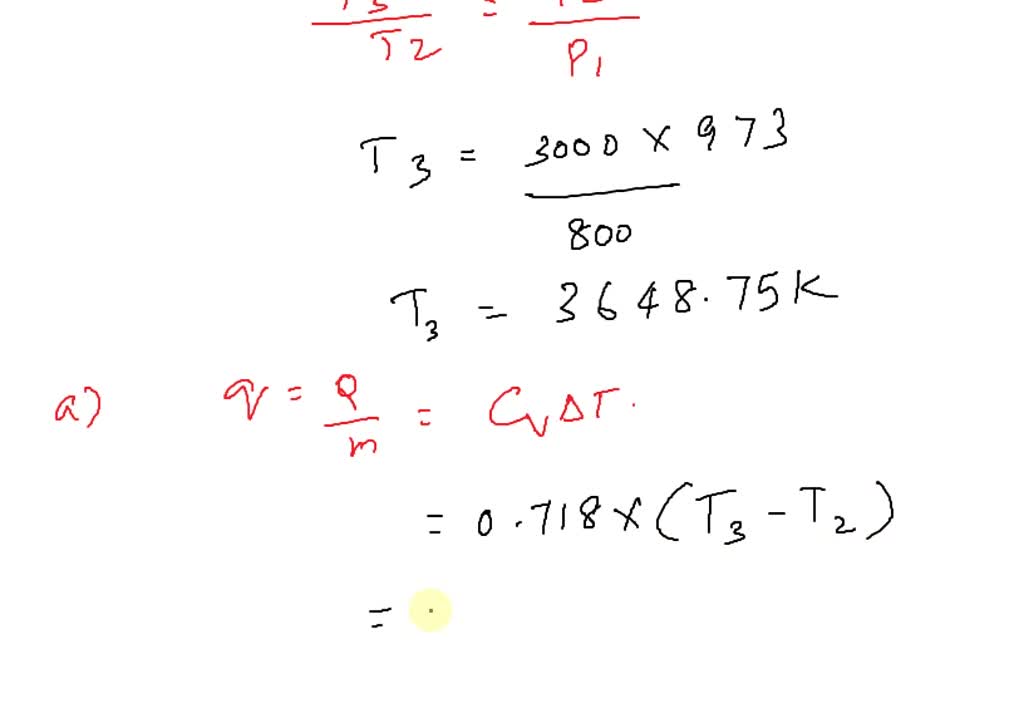 T2 = P1
T3 = 3000 × 973
800
T3 = 3648.75K
a) q = Q/m = Cv ΔT.
= 0.718 × (T3 - T2)
=